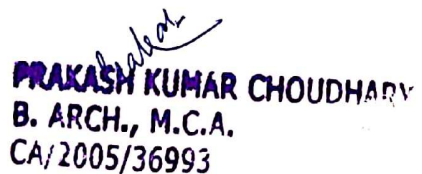 PRAKASH KUMAR CHOUDHARY
B. ARCH., M.C.A.
CA/2005/36993